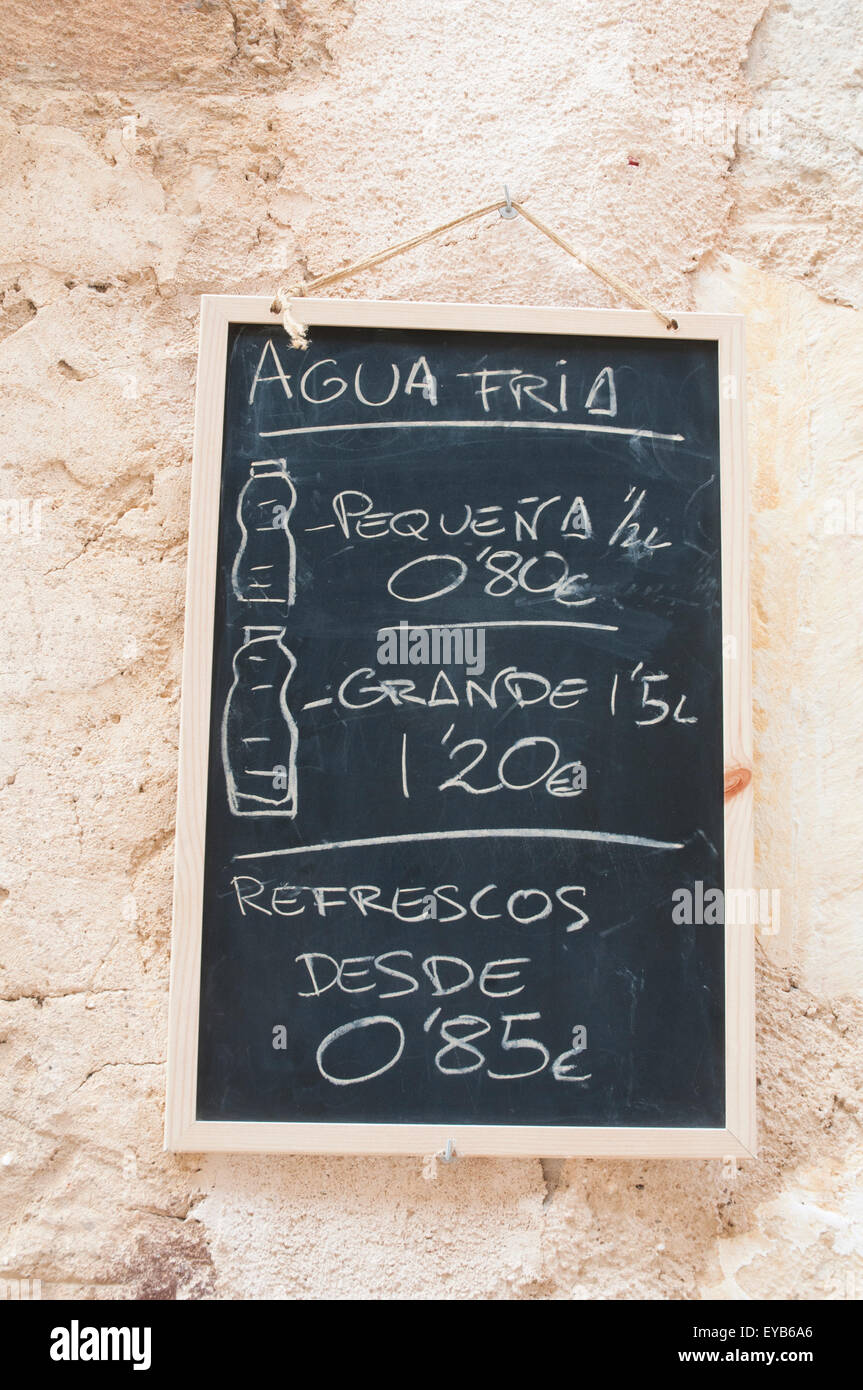 AGUA FRIA
-PEQUEÑA 1/2L
0'80€
-GRANDE 1'5L
1'20€
REFRESCOS
DESDE
0'85€
alamy
Image ID: EYB6A6
www.alamy.com